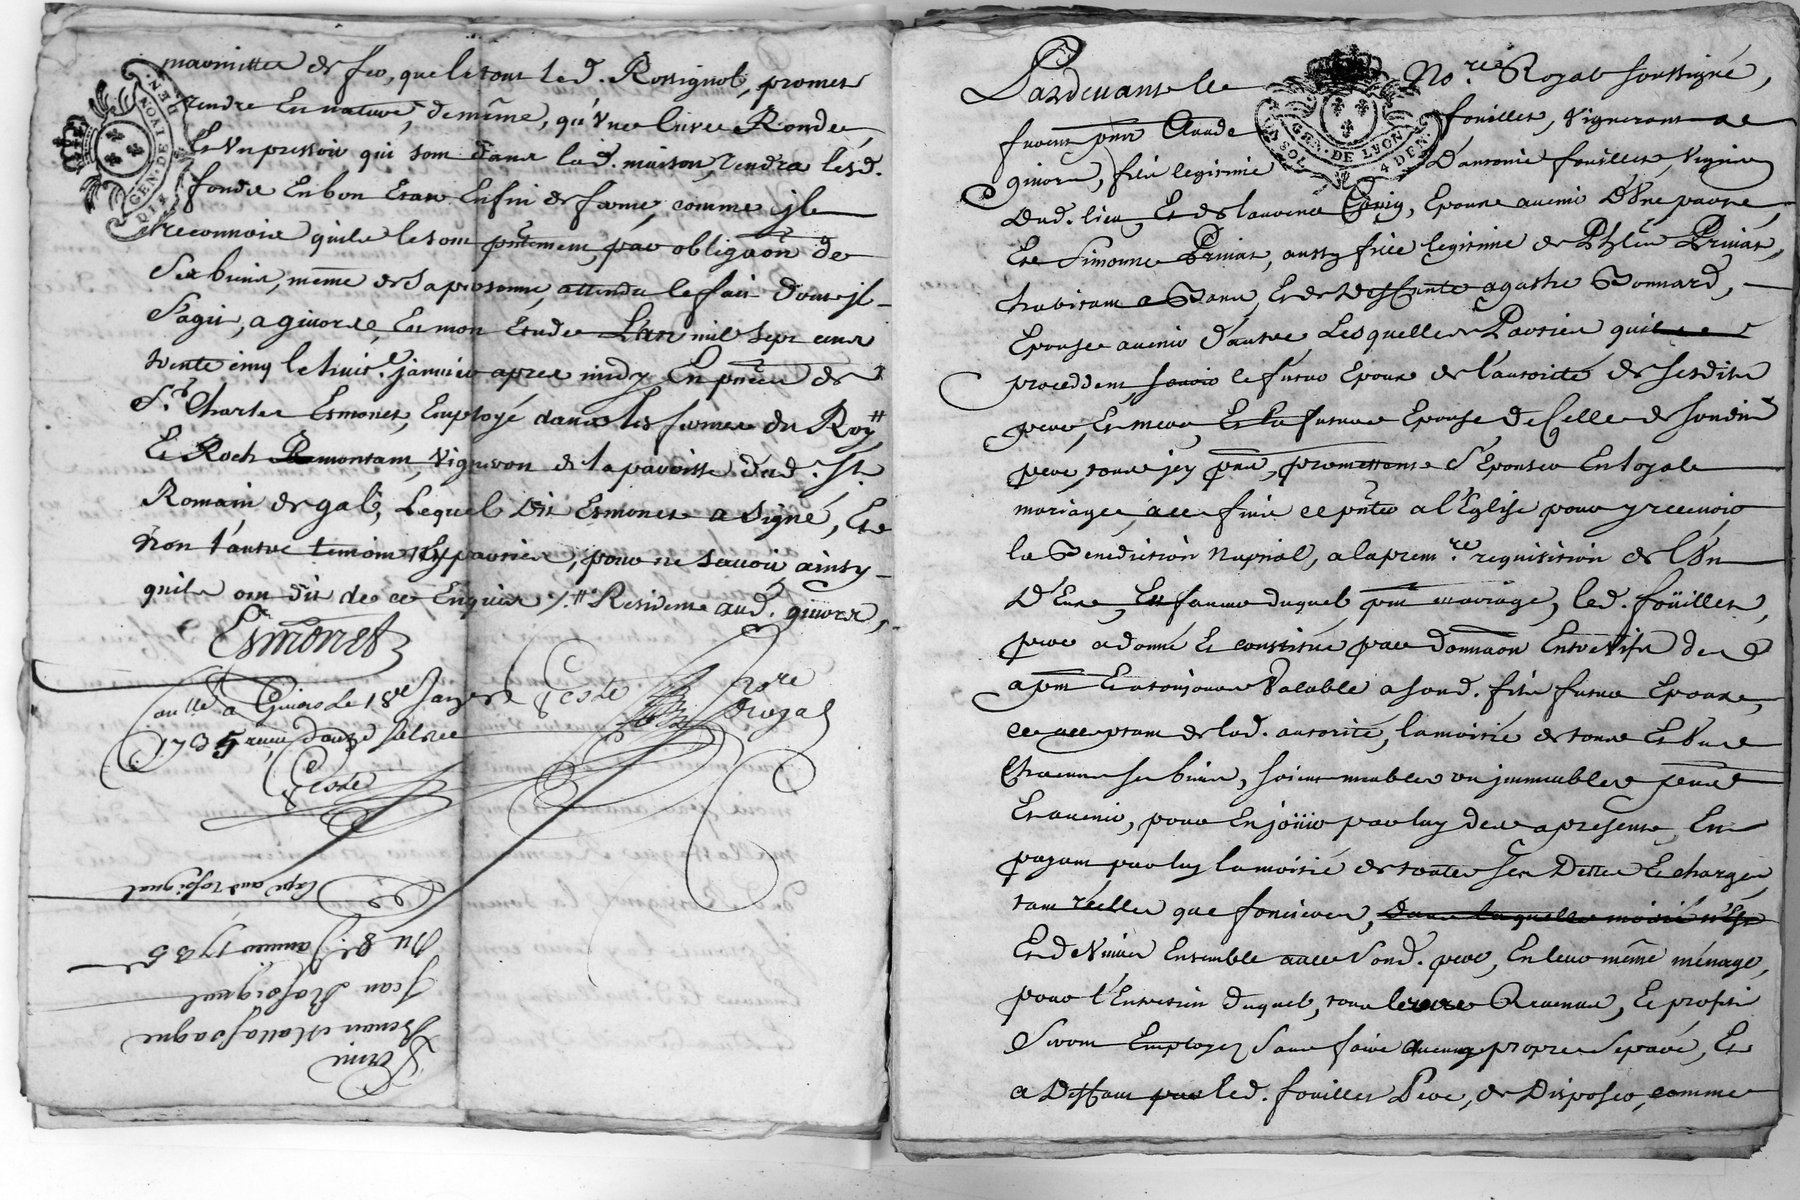 marmittes de fer, que le tout led. Rossignol, promet
rendre En nature, de même, qu'une Cuvee Ronde,
Et Un pressoir qui sont dans lad. maison, rendra lesd.
fonds En bon Etat En fin de ferme, comme jl
reconnoit qu'ils le sont pntement, par obligaon de
Ses biens, même de sa personne, attendu le fait dont jl
S'agit, a givors, En mon Etude L'an mil sept cent
trente cinq le huit.e janvier apres midy En pnce de
S.r Charles Esmonet, Employé dans les fermes du Roy #
Et Roch Remontam, Vigneron de la paroisse dud. St.
Romain de gal, Lequel dit Esmonet a signé, Et
non l'autre temoin Ny parties, pour ne savoir ainsy
qu'ils ont dit de ce Enquis /. # Resident aud. givors,
Esmonet
Coste
No.re
Royal
Con.llé a Givors le 18.e Janvier
1735 reçu douze sols
Coste
GEN. DE LYON
Ferme
Benoit Mallassagne
Jean Rossignol
Du 8.e Janvier 1735
Expe. aud Rossignol
Pardevant le No.re Royal soussigné,
GEN. DE LYON
furent pnts Claude fouillet, Vigneront de
givors, fils legitime D'antoine fouillet, Vigneron
Dud. lieu, Et de laurence Epoux avenir D'Une part,
Et Simonne Privat, aussy fille legitime de Privat,
habitant a Et de deffunte agathe Bonnard,
Epouse avenir d'autre Lesquelles Parties
procedent, savoir le futur Epoux de l'autorité de sesdits
pere, Et mere, Et la future Epouse de Celle de sondit
pere, tous jcy pnts, promettent S'Epouser En loyal
mariage, a ces fins ce pnter a l'Eglise pour y recevoir
la Benediction Nuptial, a la prem.re requisition de l'Un
D'Eux, En faveur duquel pnt mariage, led. foüillet,
pere a donné Et constitué par donnaon Entre Vifs de d
a pnt Et a toujours Valable a sond. fils futur Epoux,
ce acceptant de lad. autorité, la moitié de tous Et Uns
Chacuns ses biens, soient meubles ou jmmeubles pnts
Et avenir, pour En joüir par luy des a present, En
payant par luy la moitié de toutes ses Dettes Et charges
tant réelles que foncieres, dans laquelle moitié
Et de Vivre Ensemble avec sond. pere, En leur même ménage,
pour l'Entretien duquel, tous leurs Revenus, Et profits
Seront Employez sans faire aucun propre Separé, Et
a Deffaut par led. fouillet Pere, de Disposer, comme